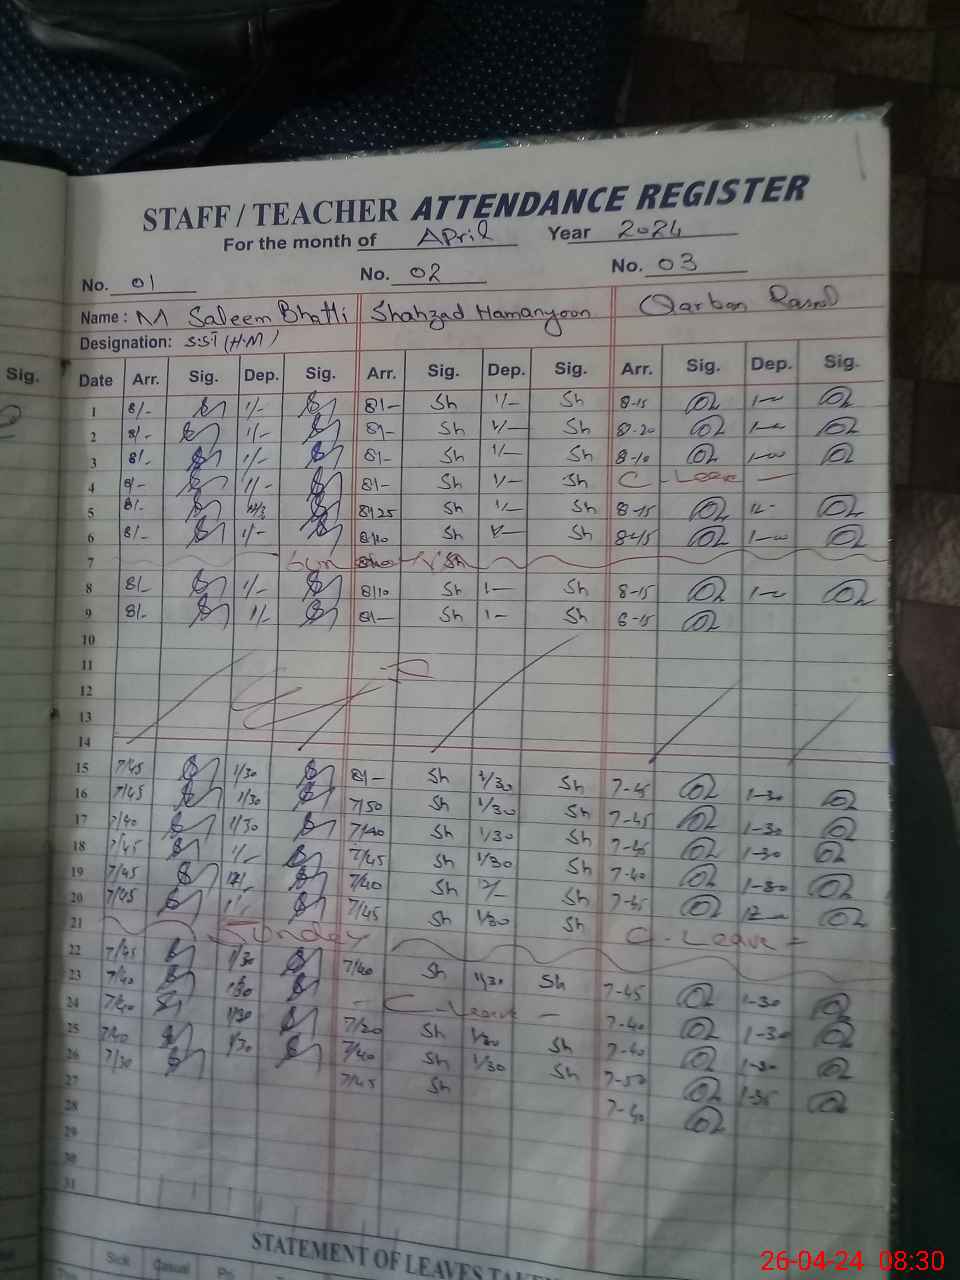 STAFF / TEACHER ATTENDANCE REGISTER
For the month of April Year 2024
No. 01 No. 02 No. 03
Name: M Saleem Bhatti Shahzad Hamanyoon Qarban Rasul
Designation: S.ST (H.M)
Sig. Date Arr. Sig. Dep. Sig. Arr. Sig. Dep. Sig. Arr. Sig. Dep. Sig.
1 8/- 1/- 8/- Sh 1/- Sh 8-15
2 8/- 1/- 8/- Sh 1/- Sh 8-20
3 8/- 1/- 8/- Sh 1/- Sh 8-10
4 8/- 1/- 8/- Sh 1/- Sh C - Leave -
5 8/- 8/25 Sh 1/- Sh 8-15 12-
6 8/- 1/- 8/10 Sh 1/- Sh 8-15
7 Sh
8 8/- 1/- 8/10 Sh 1- Sh 8-15
9 8/- 1/- 8/- Sh 1- Sh 8-15
10
11
12
13
14
15 7/45 1/30 8/- Sh 1/30 Sh 7-45 1-30
16 7/45 1/30 7/50 Sh 1/30 Sh 7-45 1-30
17 7/40 1/30 7/40 Sh 1/30 Sh 7-45 1-30
18 7/45 1/- 7/45 Sh 1/30 Sh 7-40 1-30
19 7/45 7/40 Sh 12/- Sh 7-45 12
20 7/45 7/45 Sh 1/30 Sh C - Leave -
21 Sunday
22 7/45 1/30 7/40 Sh 1/30 Sh 7-45 1-30
23 7/40 1/30 - C - Leave - 7-40 1-30
24 7/40 1/30 7/20 Sh 1/30 Sh 7-40 1-30
25 7/40 1/30 7/40 Sh 1/30 Sh 7-50 1-35
26 7/30 7/45 Sh 7-40
27
28
29
30
31
STATEMENT OF LEAVES TAKEN
Sick Casual
26-04-24 08:30